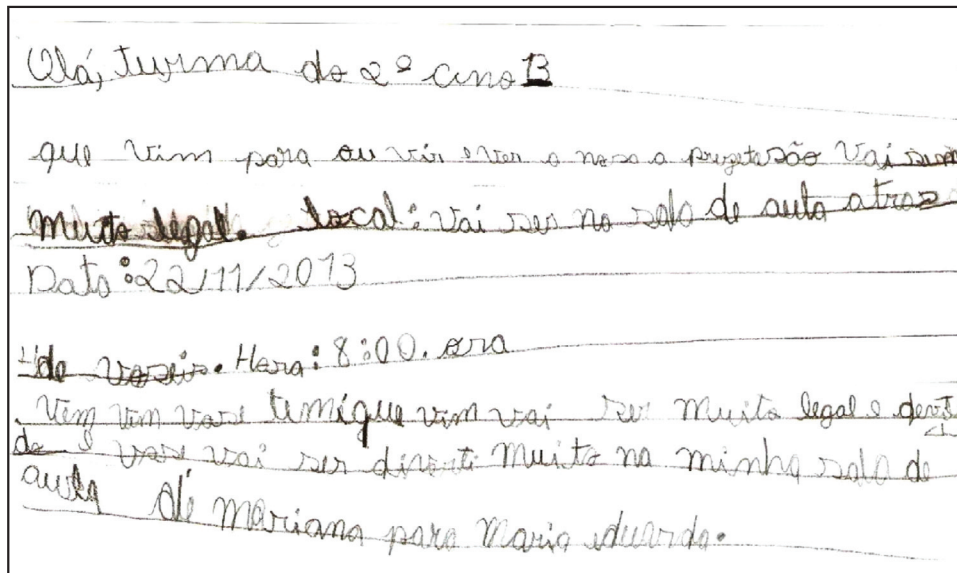 Olá, turma do 2º ano B
que vim para ou vir e ver a nosa a prugetasão Vai ser
muito legal. local: Vai ser na sala de aula atras
Data: 22/11/2013
de voseis. Hora: 8:00. ora
Vem vim vose temique vim vai ser muito legal e devit
do e vose vai ser diverti muito na minha sala de
aula de mariana para Maria eduarda.